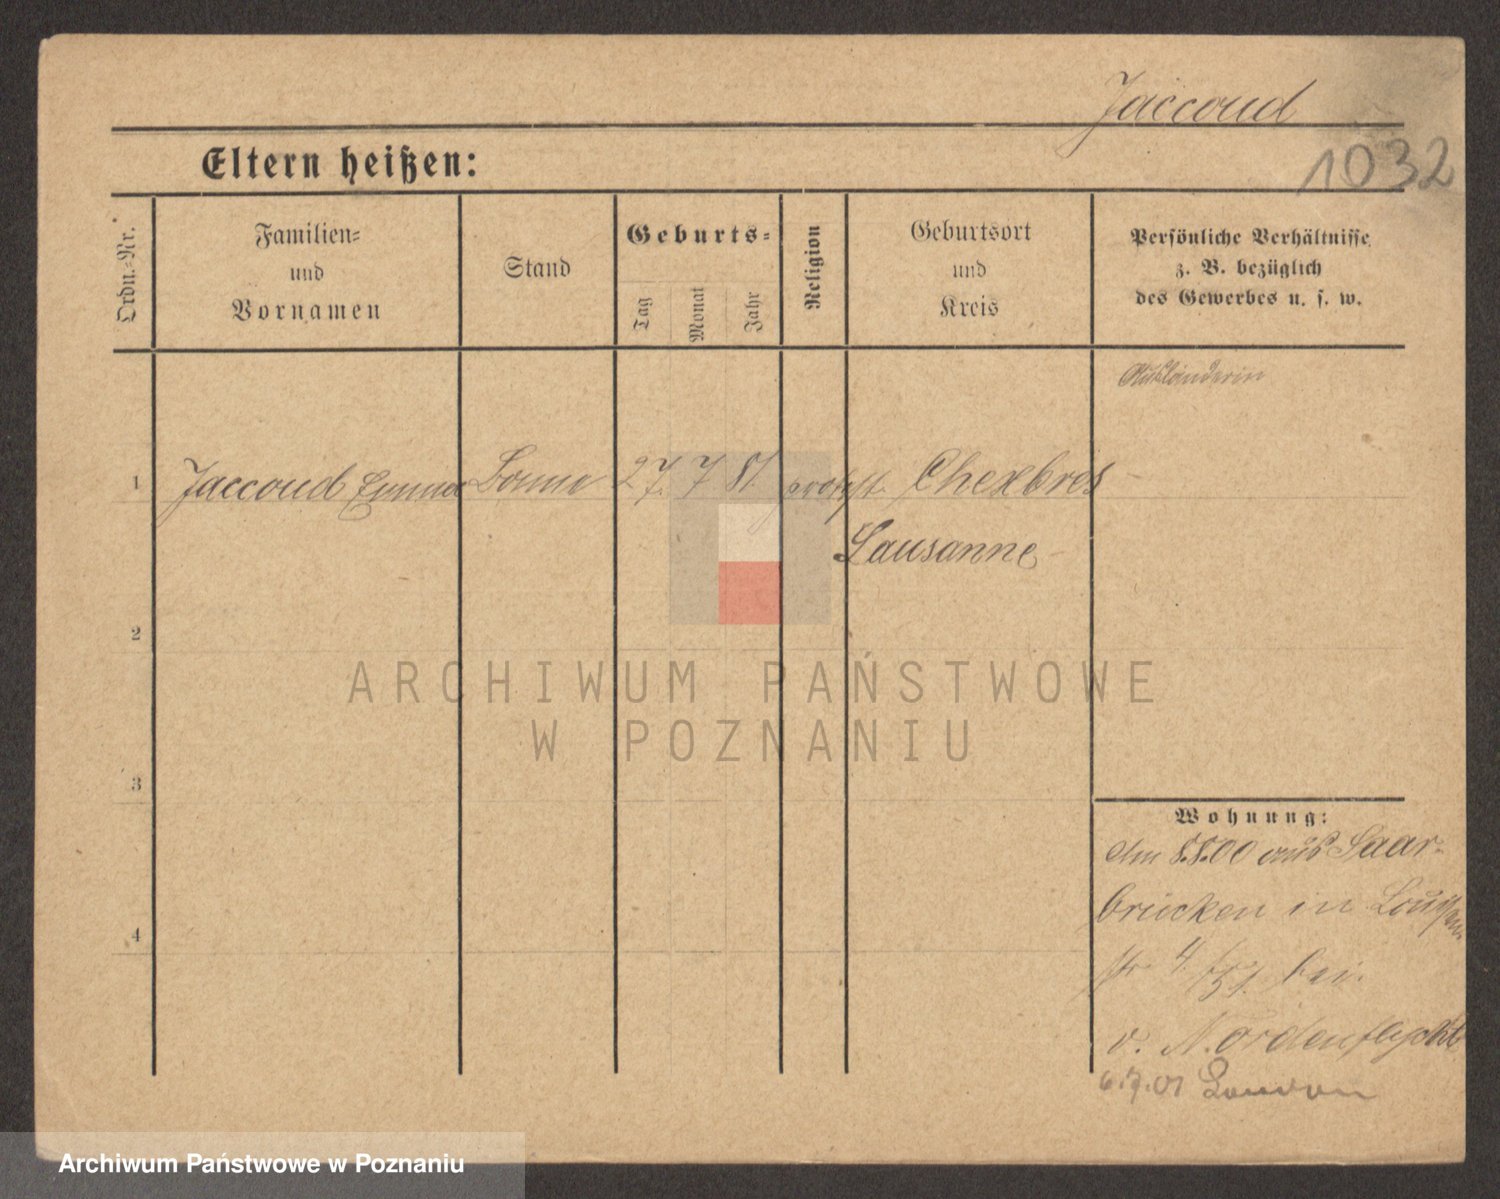 Jaccoud
1032
Eltern heißen:
Ordn.-Nr.
Familien-
und
Vornamen
Stand
Geburts-
Tag
Monat
Jahr
Religion
Geburtsort
und
Kreis
Persönliche Verhältnisse
z. B. bezüglich
des Gewerbes u. s. w.
Ausländerin
1 Jaccoud Emma Bonne 27. 7 81 protest. Chexbres
Lausanne
2
3
4
Wohnung:
Am 8.8.00 aus Saar-
brücken in Louisen
str 4. bei
v. Nordenflycht
6.7.01 London
ARCHIWUM PAŃSTWOWE
W POZNANIU
Archiwum Państwowe w Poznaniu